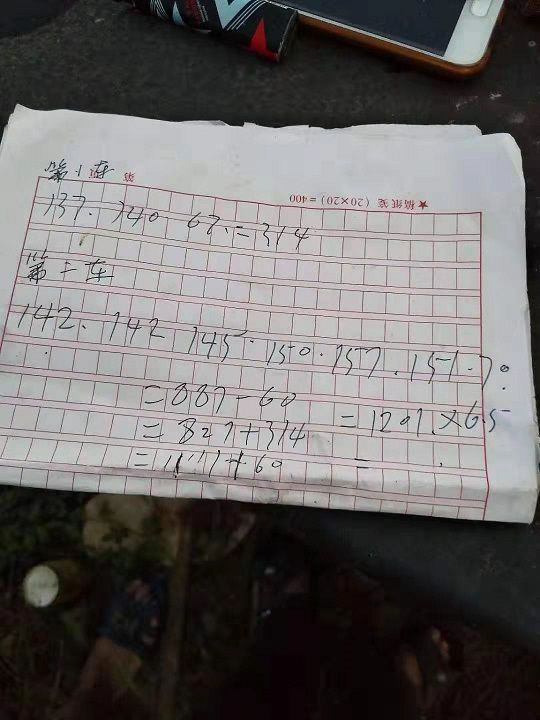 第1车
★稿纸笺 (20×20)=400
137. 140 67.=314
第二车
142. 142 145. 150. 157. 151.
=887-60
=1201.×6.5
=827+314
=1141+60 =